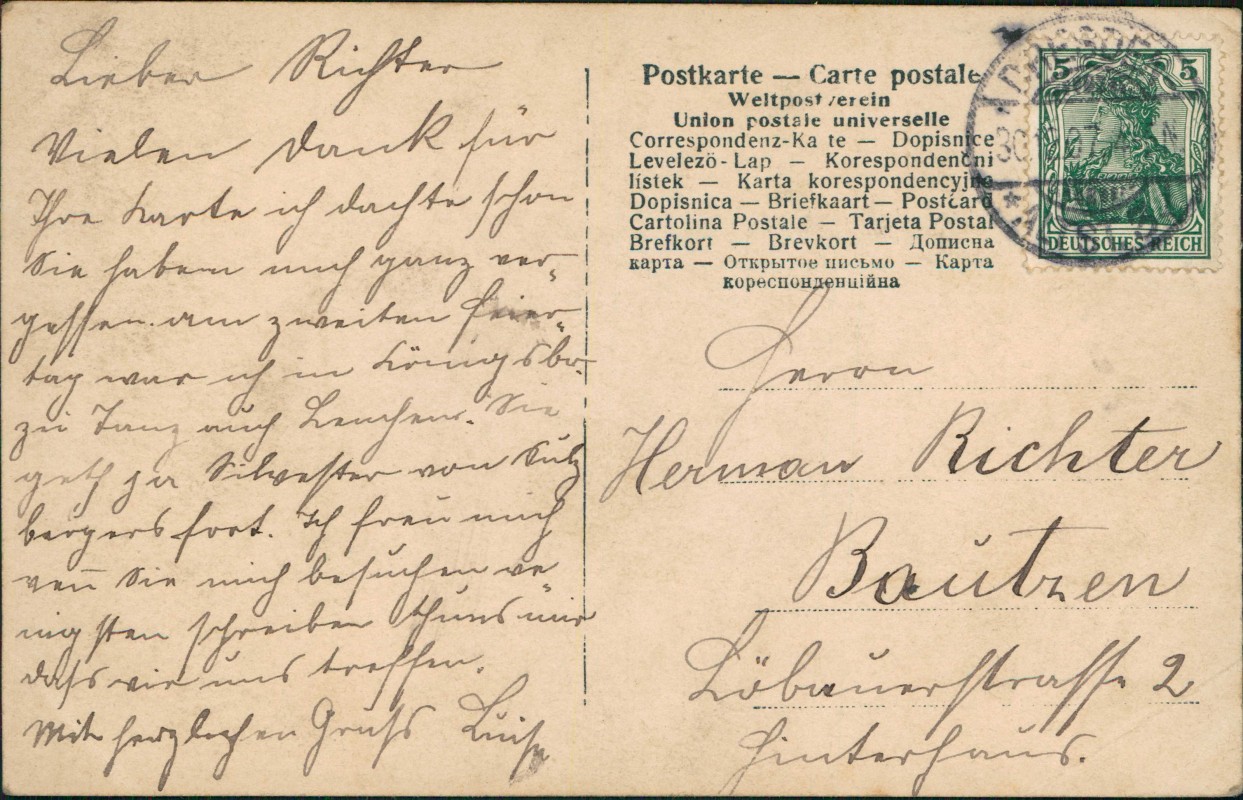 Lieber Richter
Vielen Dank für
Ihre Karte ich dachte schon
Sie haben mich ganz ver-
gessen. am zweiten Feier-
tag war ich in Königsbr.
zu Tanz auch Lenchen. Sie
geth ja Silvester von Sulz
bergers fort. Ich freu mich
wen̄ Sie mich besuchen we-
nigsten schreiben thuns mir
dass wir uns treffen.
Mit herzlichen Gruss Luise
Postkarte — Carte postale
Weltpostverein
Union postale universelle
Correspondenz-Ka te — Dopisnice
Levelezö-Lap — Korespondenčni
lístek — Karta korespondencyjne
Dopisnica — Briefkaart — Postcard
Cartolina Postale — Tarjeta Postal
Brefkort — Brevkort — Дописна
карта — Открытое письмо — Карта
кореспонденційна
5 5
DEUTSCHES REICH
DRESDEN
30
Herrn
Herman Richter
Bautzen
Löbauerstrasse 2
Hinterhaus.